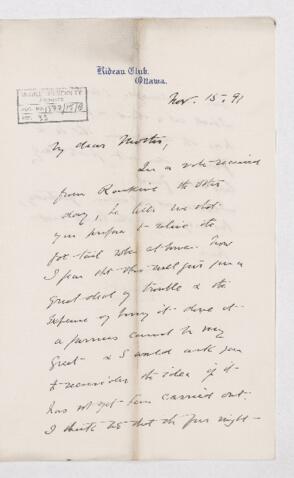 Rideau Club,
Ottawa.
Nov. 15. 91
My dear Mother,
In a note received
from Rankine the other
day, he tells me that
you propose to the
fox-tail robe at home. Now
I fear that this will give you a
great deal of trouble & the
expense of having it done at
a furriers cannot be very
great - & I would ask you
to reconsider the idea if it
has not yet been carried out.
I think too that the fur might-